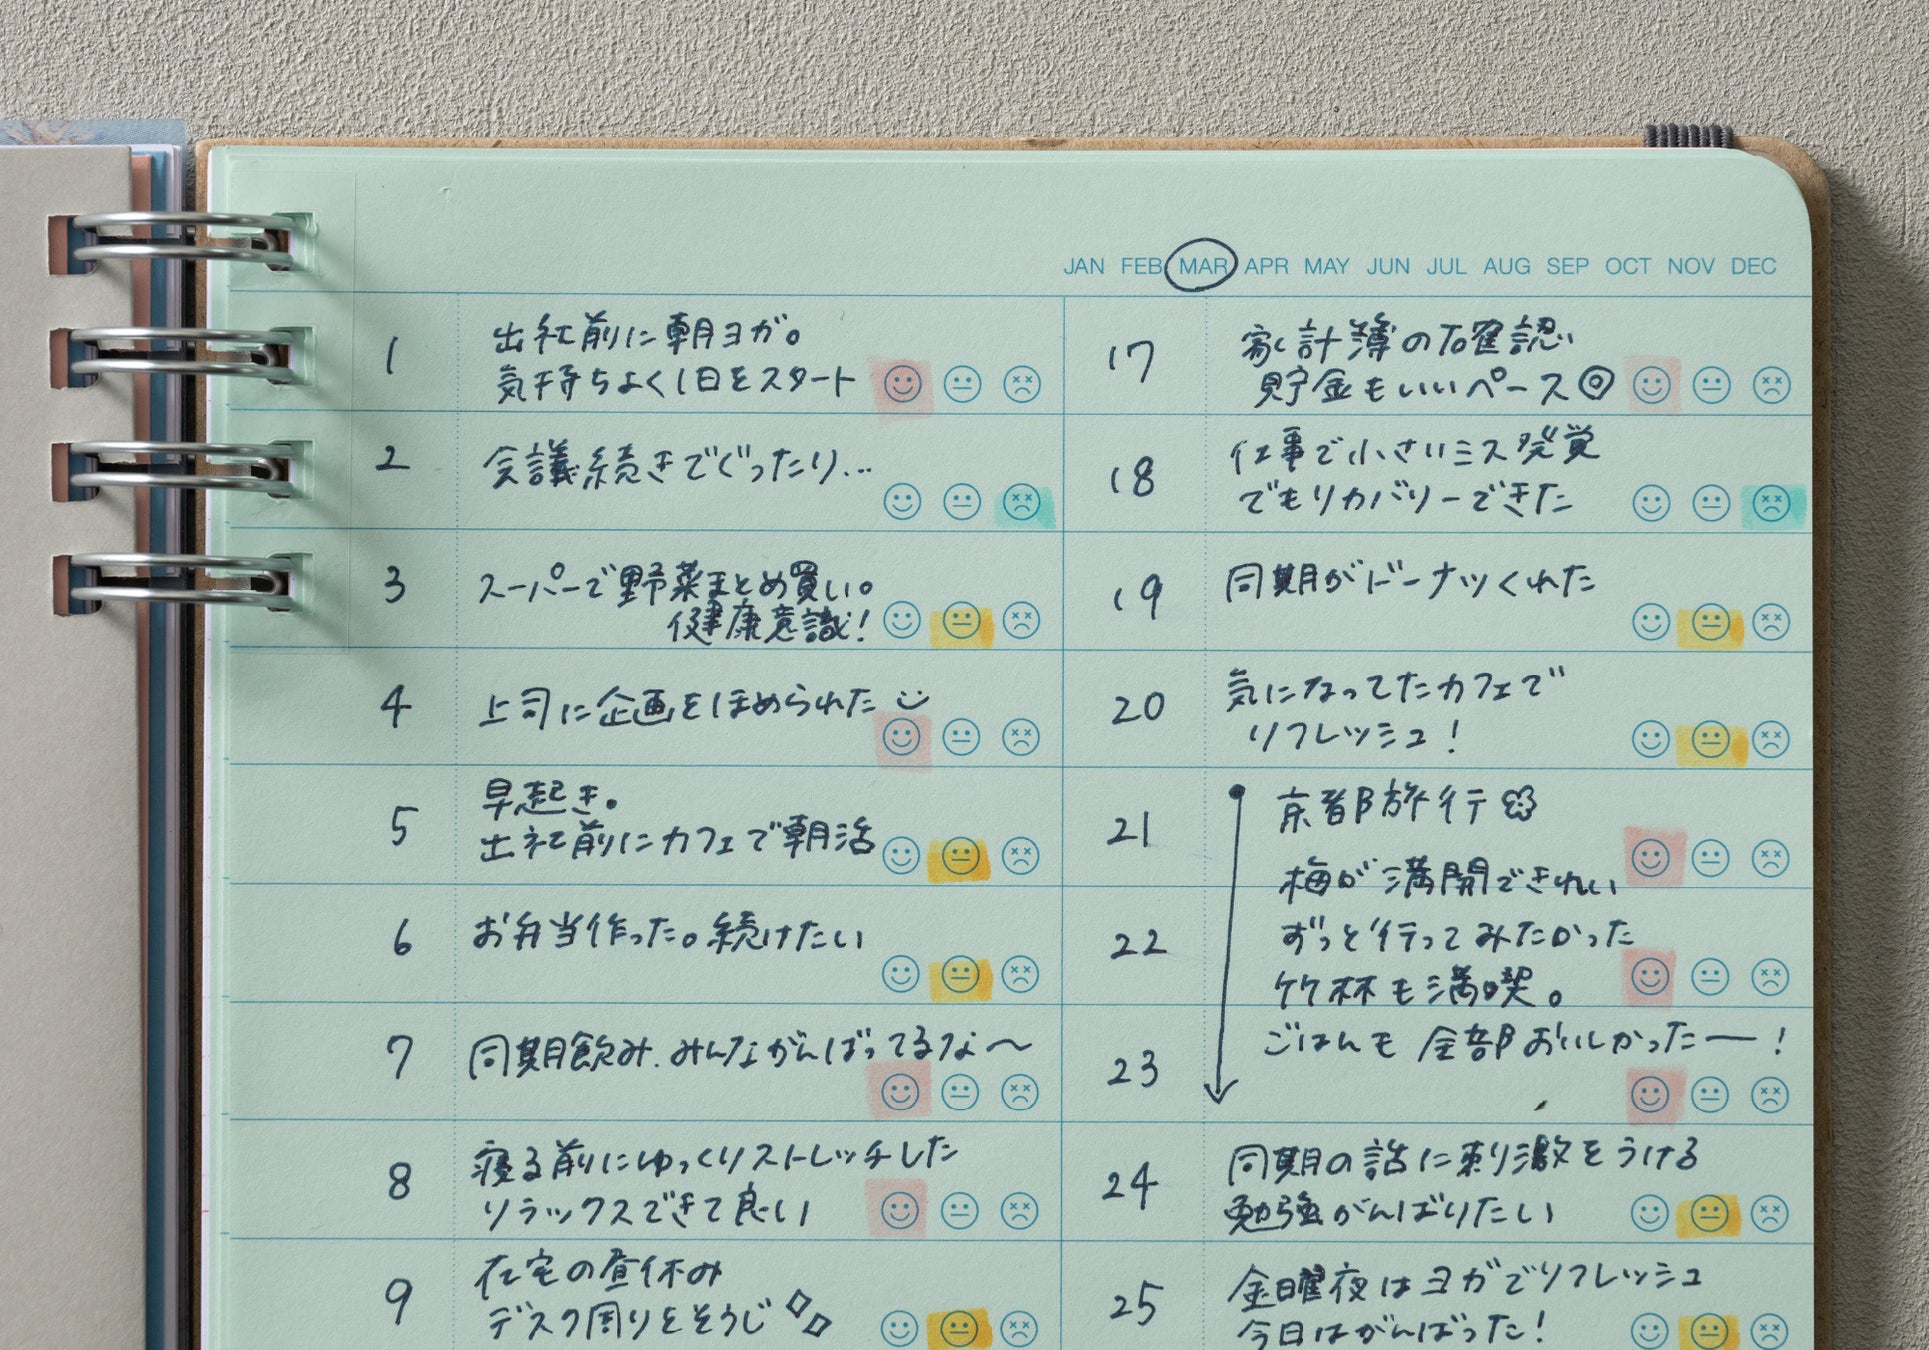 JAN FEB MAR APR MAY JUN JUL AUG SEP OCT NOV DEC
1
出社前に朝ヨガ。
気持ちよく1日をスタート
2
会議続きでぐったり...
3
スーパーで野菜まとめ買い。
健康意識!
4
上司に企画をほめられた
5
早起き。
出社前にカフェで朝活
6
お弁当作った。続けたい
7
同期飲み.みんながんばってるな〜
8
寝る前にゆっくりストレッチした
リラックスできて良い
9
在宅の昼休み
デスク周りをそうじ
17
家計簿の確認
貯金もいいペース◎
18
仕事で小さいミス発覚
でもリカバリーできた
19
同期がドーナツくれた
20
気になってたカフェで
リフレッシュ!
21
京都旅行
梅が満開できれい
22
ずっと行ってみたかった
竹林も満喫。
23
ごはんも全部おいしかったー!
24
同期の話に刺激をうける
勉強がんばりたい
25
金曜夜はヨガでリフレッシュ
今日はがんばった!